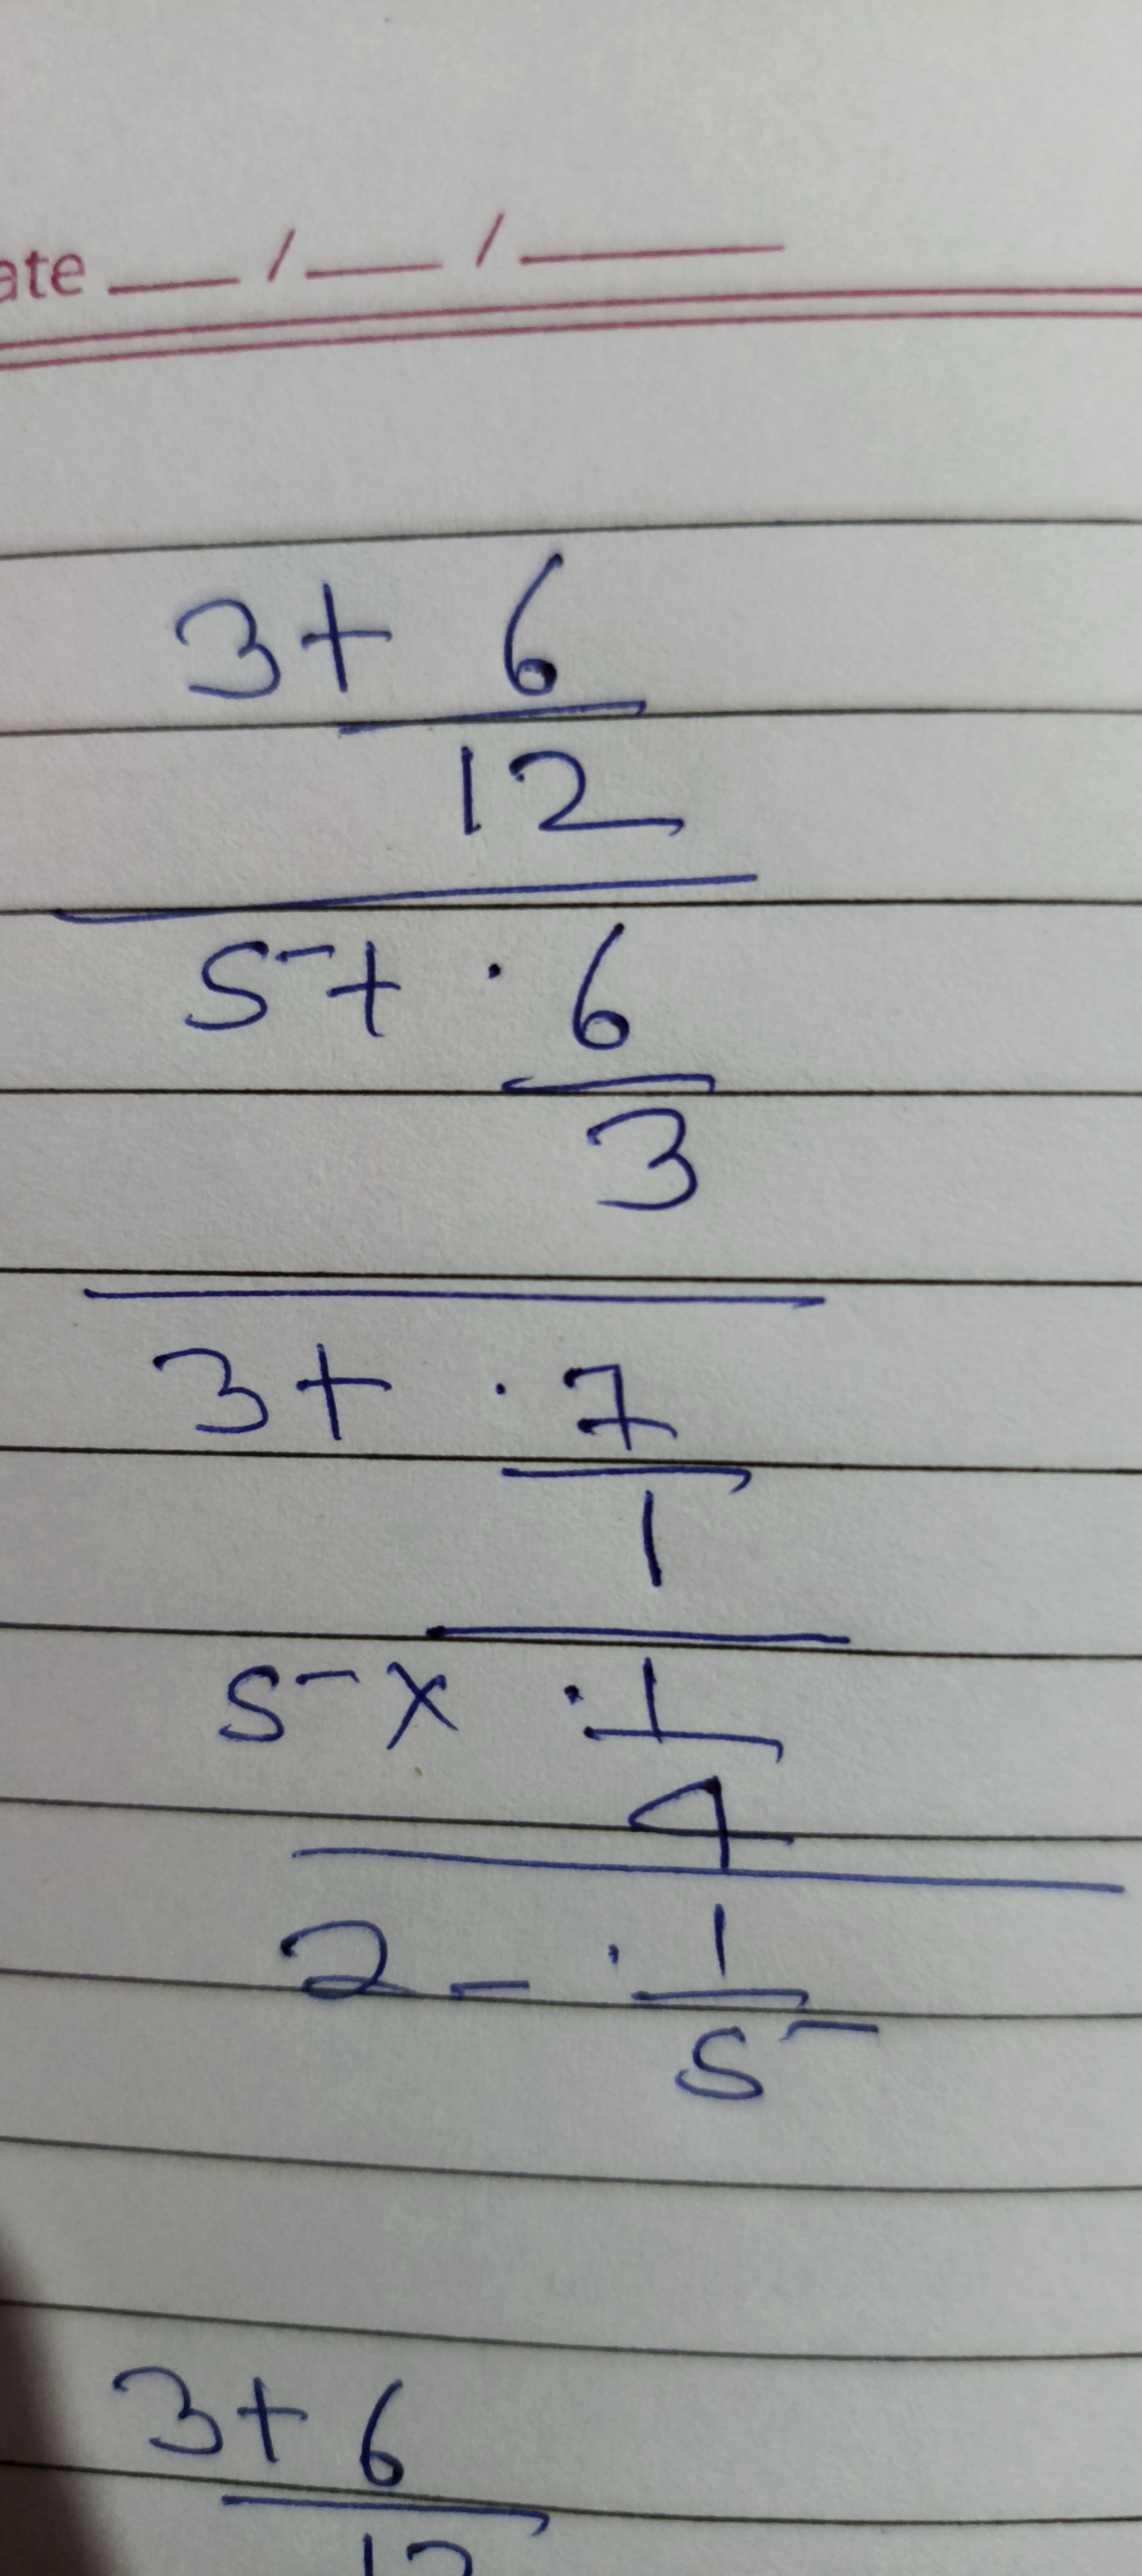 ate __ / __ / ____
3 + 6
12
5 + . 6
3
3 + . 7
1
5 × . 1
4
2 - . 1
5
3 + 6
12